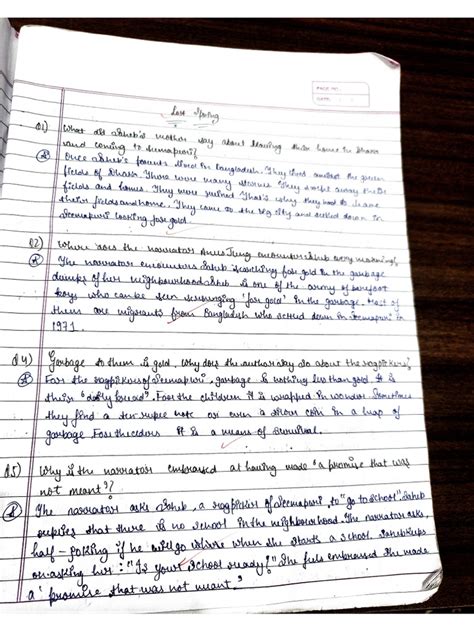 PAGE NO.
DATE
Lost Spring
Q1) What did Saheb's mother say about leaving their home in Dhaka
and coming to Seemapuri?
Once Saheb's parents lived in Bangladesh. They lived amidst the green
fields of Dhaka. There were many storms They swept away their
fields and homes. They were ruined That's why they had to leave
their fields and home. They came to the big city and settled down in
Seemapuri looking for gold.
Q2) Where does the narrator Anees Jung encounter Saheb every morning?
The narrator encounters Saheb searching for gold in the garbage
dumps of her neighbourhood. Saheb is one of the army of barefoot
boys who can be seen scrounging 'for gold' in the garbage. Most of
them are migrants from Bangladesh who settled down in Seemapuri in
1971.
Q4) Garbage to them is gold. Why does the author say so about the ragpickers?
For the ragpickers of Seemapuri, garbage is nothing less than gold. It is
their "daily bread". For the children it is wrapped in wonder. Sometimes
they find a ten rupee note or even a silver coin in a heap of
garbage. For the elders it is a means of survival.
Q.5) Why is the narrator embrassed at having made "a promise that was
not meant"?
The narrator asks Saheb, a ragpicker of Seemapuri, to "go to school" Saheb
replies that there is no school in the neighbourhood. The narrator asks,
half-joking if he will go there when she starts a school. Saheb
on asking her: "Is your school ready?" She feels embrassed she made
a 'promise that was not meant."